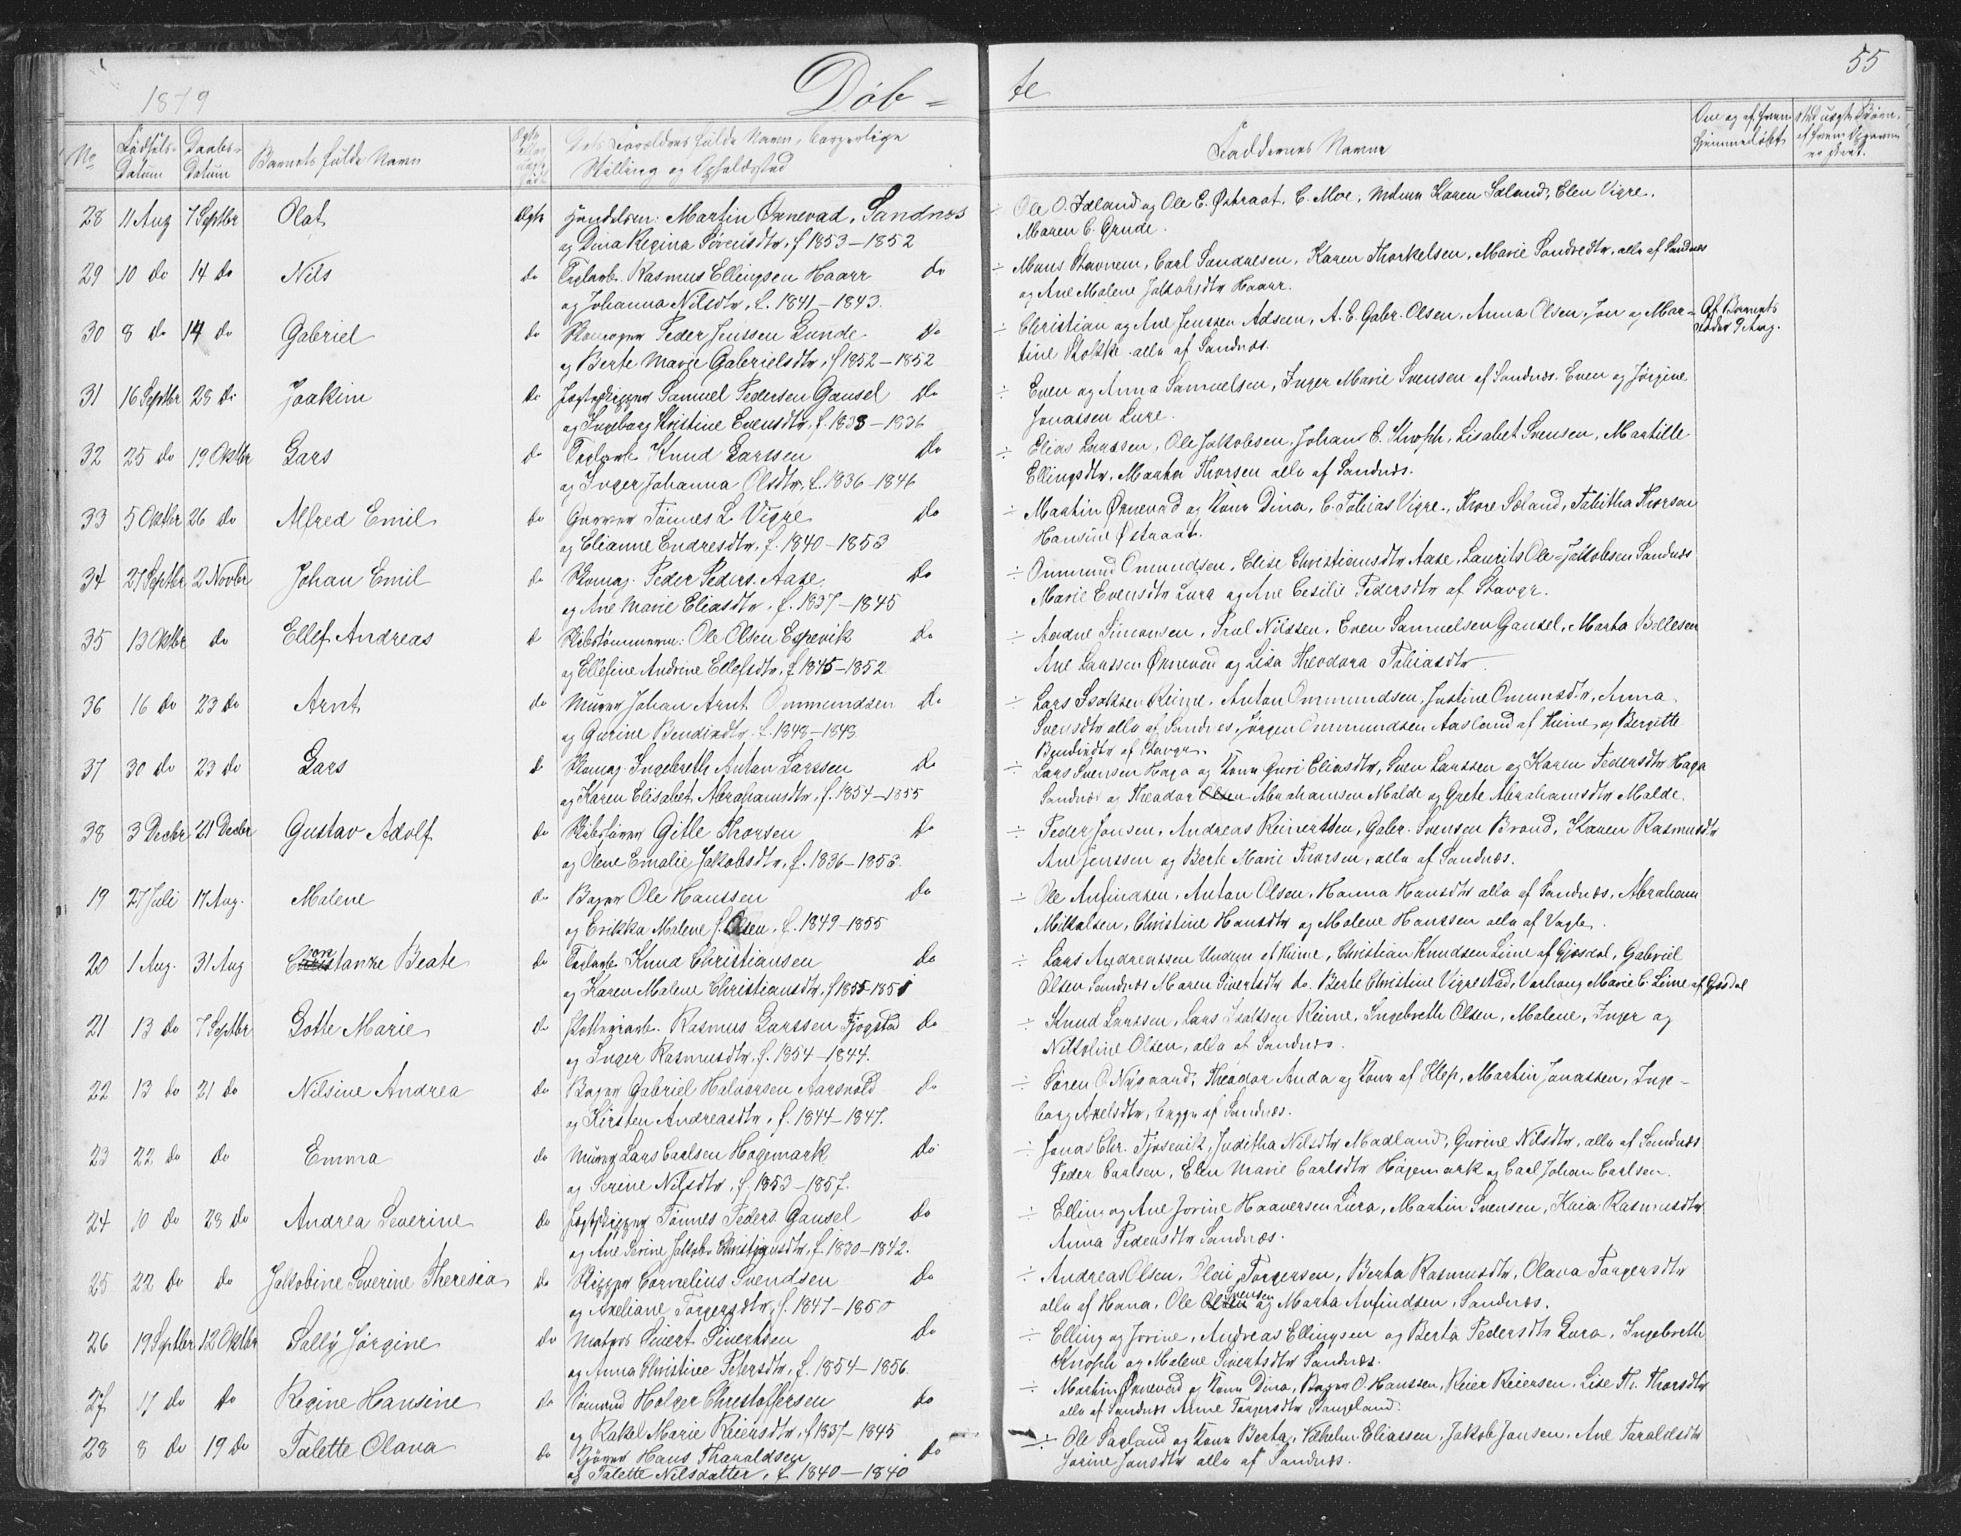 1879
Døb-
te
55
No
Fødsels-
Datum
Daabs-
Datum
Barnets fulde Navn
Forældrenes fulde Navn, borgerlige
Stilling og Opholdssted
Faddernes Navne
28 11 Aug 7 Septbr Olaf Ægte Martin Ønnevad, Sandnes
og Dina Regina Sørensdtr, f. 1853–1852
÷ Ole O. Fæland og Ole E. Østraat, C. Moe, Karen Sæland, Elen Vigre,
Maren E. Grude.
29 10 do 14 do Nils do Rasmus Ellingsen Haarr do
og Johanna Nilsdtr, f. 1841–1843.
÷ Mons Stavnem, Carl Sandresen, Karen Thorkelsen, Marie Sandvedtr, alle af Sandnes
og Ane Malene Jakobsdtr Haarr.
30 8 do 14 do Gabriel do Peder Jenssen Lunde do
og Berte Marie Gabrielsdtr, f 1852–1852
÷ Christian og Ane Jenssen Adseen, A. E. Gabr. Olsen, Anna Olsen, Jon og Mar-
tine Stokke alle af Sandnes.
Af Barnets
Fader 9 Aug.
31 16 Septbr 28 do Joakim do Jagtskipper Samuel Pedersen Gausel do
og Ingeborg Kristine Evensdtr, f. 1833–1836
÷ Even og Anna Samuelsen, Inger Marie Svensen af Sandnes. Even og Jørgine
Jonassen Lure.
32 25 do 19 Oktbr Lars do Knud Larssen do
og Inger Johanna Olsdtr, f. 1836–1846
÷ Elias Larssen, Ole Jakobsen, Johan E. Knoph, Lisabet Svensen, Martille
Ellingsdtr, Marta Thorsen alle af Sandnæs.
33 5 Oktbr 26 do Alfred Emil do Garver Tønnes L. Vigre do
og Elianne Endresdtr, f. 1840–1853
÷ Martin Ønnevad og Kone Dina, C. Tobias Vigre, Thore Sæland, Tabitha Thorsen
Hansine Østraat.
34 27 Septbr 2 Novbr Johan Emil do Skomag. Peder Peders. Aase do
og Ane Marie Eliasdtr, f. 1837–1845
÷ Ommund Omundsen, Elise Christiansdtr Aase, Laurits Ole Jakobsen Sandnæs
Marie Evensdtr Lura og Ane Cesilie Pedersdtr af Stavgr.
35 13 Oktbr do Ellef Andreas do Skibstømmerm: Ole Olsen Espevik do
og Ellefine Andrine Ellefsdtr, f 1845–1852
÷ Andrne Simonsen, Poul Nilssen, Even Samuelsen Gausel, Marta Bollesen
Ane Larssen Ønnevad og Lisa Theodora Tobiasdtr
36 16 do 23 do Arnt do Murer Johan Arnt Ommundsen do
og Gurine Bendixdtr f. 1848–1848
÷ Lars Isaksen Reime, Anton Ommundsen, Justine Omunsdtr, Anna
Svensdtr alle af Sandnes, Jørgen Ommundsen Aasland af Hime, og Bergitte
Bendixdtr af Stavgr.
37 30 do 23 do Lars do Skomag. Ingebreth Antan Larssen do
og Karen Elisabet Abrahamsdtr, f. 1854–1855
÷ Lars Svensen Haga og Kone Guri Eliasdtr, Sven Larssen og Karen Pedersdtr Haga
Sandnæs og Theodor Olsen Abrahamsen Malde og Grete Abrahamsdtr Malde.
38 3 Decbr 21 Decbr Gustav Adolf do Skibsfører Gitle Thorsen do
og Olene Emalie Jakobsdtr, f. 1836–1853
÷ Peder Jonsen, Andreas Reinertsen, Gabr. Svensen Brand, Karen Rasmusdtr
Ane Jenssen og Berte Marie Thorsen, alle af Sandnæs.
19 27 Juli 17 Aug. Malene do Bager Ole Hanssen do
og Erikka Malene f. Olsen, f. 1849–1855
÷ Ole Anfindsen, Antan Olsen, Hanna Hansdtr alle af Sandnæs, Abraham
Mikalsen, Christine Hansdtr og Malene Hanssen alle af Vagle.
20 1 Aug. 31 Aug Constanse Beate do Knud Christiansen do
og Karen Malene Christiansdtr, f 1855–1851
÷ Lars Andreassen Undem af Hime, Christian Knudsen Lime af Gjesdal, Gabriel
Olsen Sandnæs Maren Sivertsdtr do. Berte Christine Vigrestad, Varhaug Marie C. Lime af Gjesdal
21 13 do 7 Septbr Lotte Marie do Rasmus Larssen Fjogstad do
og Inger Rasmusdtr, f. 1854–1844.
÷ Knud Larssen, Lars Isaksen Reime, Ingebreth Olsen, Malene, Inger og
Nilsoline Olsen, alle af Sandnes.
22 13 do 21 do Nilsine Andrea do Bager Gabriel Halvorsen Aarsvold do
og Kirsten Andreasdtr, f. 1844–1847.
÷ Søren O. Nygaard, Theodor Anda og Kone af Klep, Martin Jonassen, Inge-
borg Axelsdtr, begge af Sandnæs.
23 22 do do Emma do Murer Lars Carlsen Hagemark do
og Serine Nilsdtr, f 1853–1857.
÷ Jonas Chr. Tjosevik, Juditha Nilsdtr Madland, Gurine Nilsdtr, alle af Sandnæs
Peder Carlsen, Elen Marie Carlsdtr Hagemark og Carl Johan Carlsen.
24 10 do 28 do Andrea Severine do Jagtskipper Tønnes Peders. Gausel do
og Ane Serine Jakobs Christiansdtr, f. 1830–1842.
÷ Elling og Ane Jorine Haaversen Lura, Martin Svensen, Kaia Rasmusdtr
Anna Pedersdtr Sandnæs.
25 22 do do Jakobine Severine Theresia do Skipper Cornelius Svendsen do
og Axeliane Torgersdtr, f. 1847–1850
÷ Andreas Olsen, Olai Torgersen, Berta Rasmusdtr, Olava Torgersdtr
alle af Hana, Ole Olsen Svensen og Marta Anfindsen, Sandnæs.
26 19 Septbr 12 Oktbr Sally Jørgine do Matros Sivert Sivertsen do
og Anna Christine Petersdtr, f. 1854–1856
÷ Elling og Jorine, Andreas Ellingsen og Berta Pedersdtr Lura, Ingebreth
Knoph og Malene Sivertsdtr Sandnæs.
27 11 do do Regine Hansine do Sømand Holger Christoffersen do
og Rakel Marie Reiersdtr, f 1837–1845
÷ Martin Ønnevad og Kone Dina, Bager O. Hanssen, Reier Reiersen, Lise Th. Thorsdtr
alle af Sandnes Anne Torgersdtr Stangeland.
28 8 do 19 do Talette Olava do Hans Tharaldsen do
og Talette Nilsdatter, f. 1840–1840
÷ Ole Sagland og Kone Berta, Vilhelm Eliassen, Jakob Jansen, Ane Taraldsdtr
Jorine Jonsdtr alle af Sandnæs.